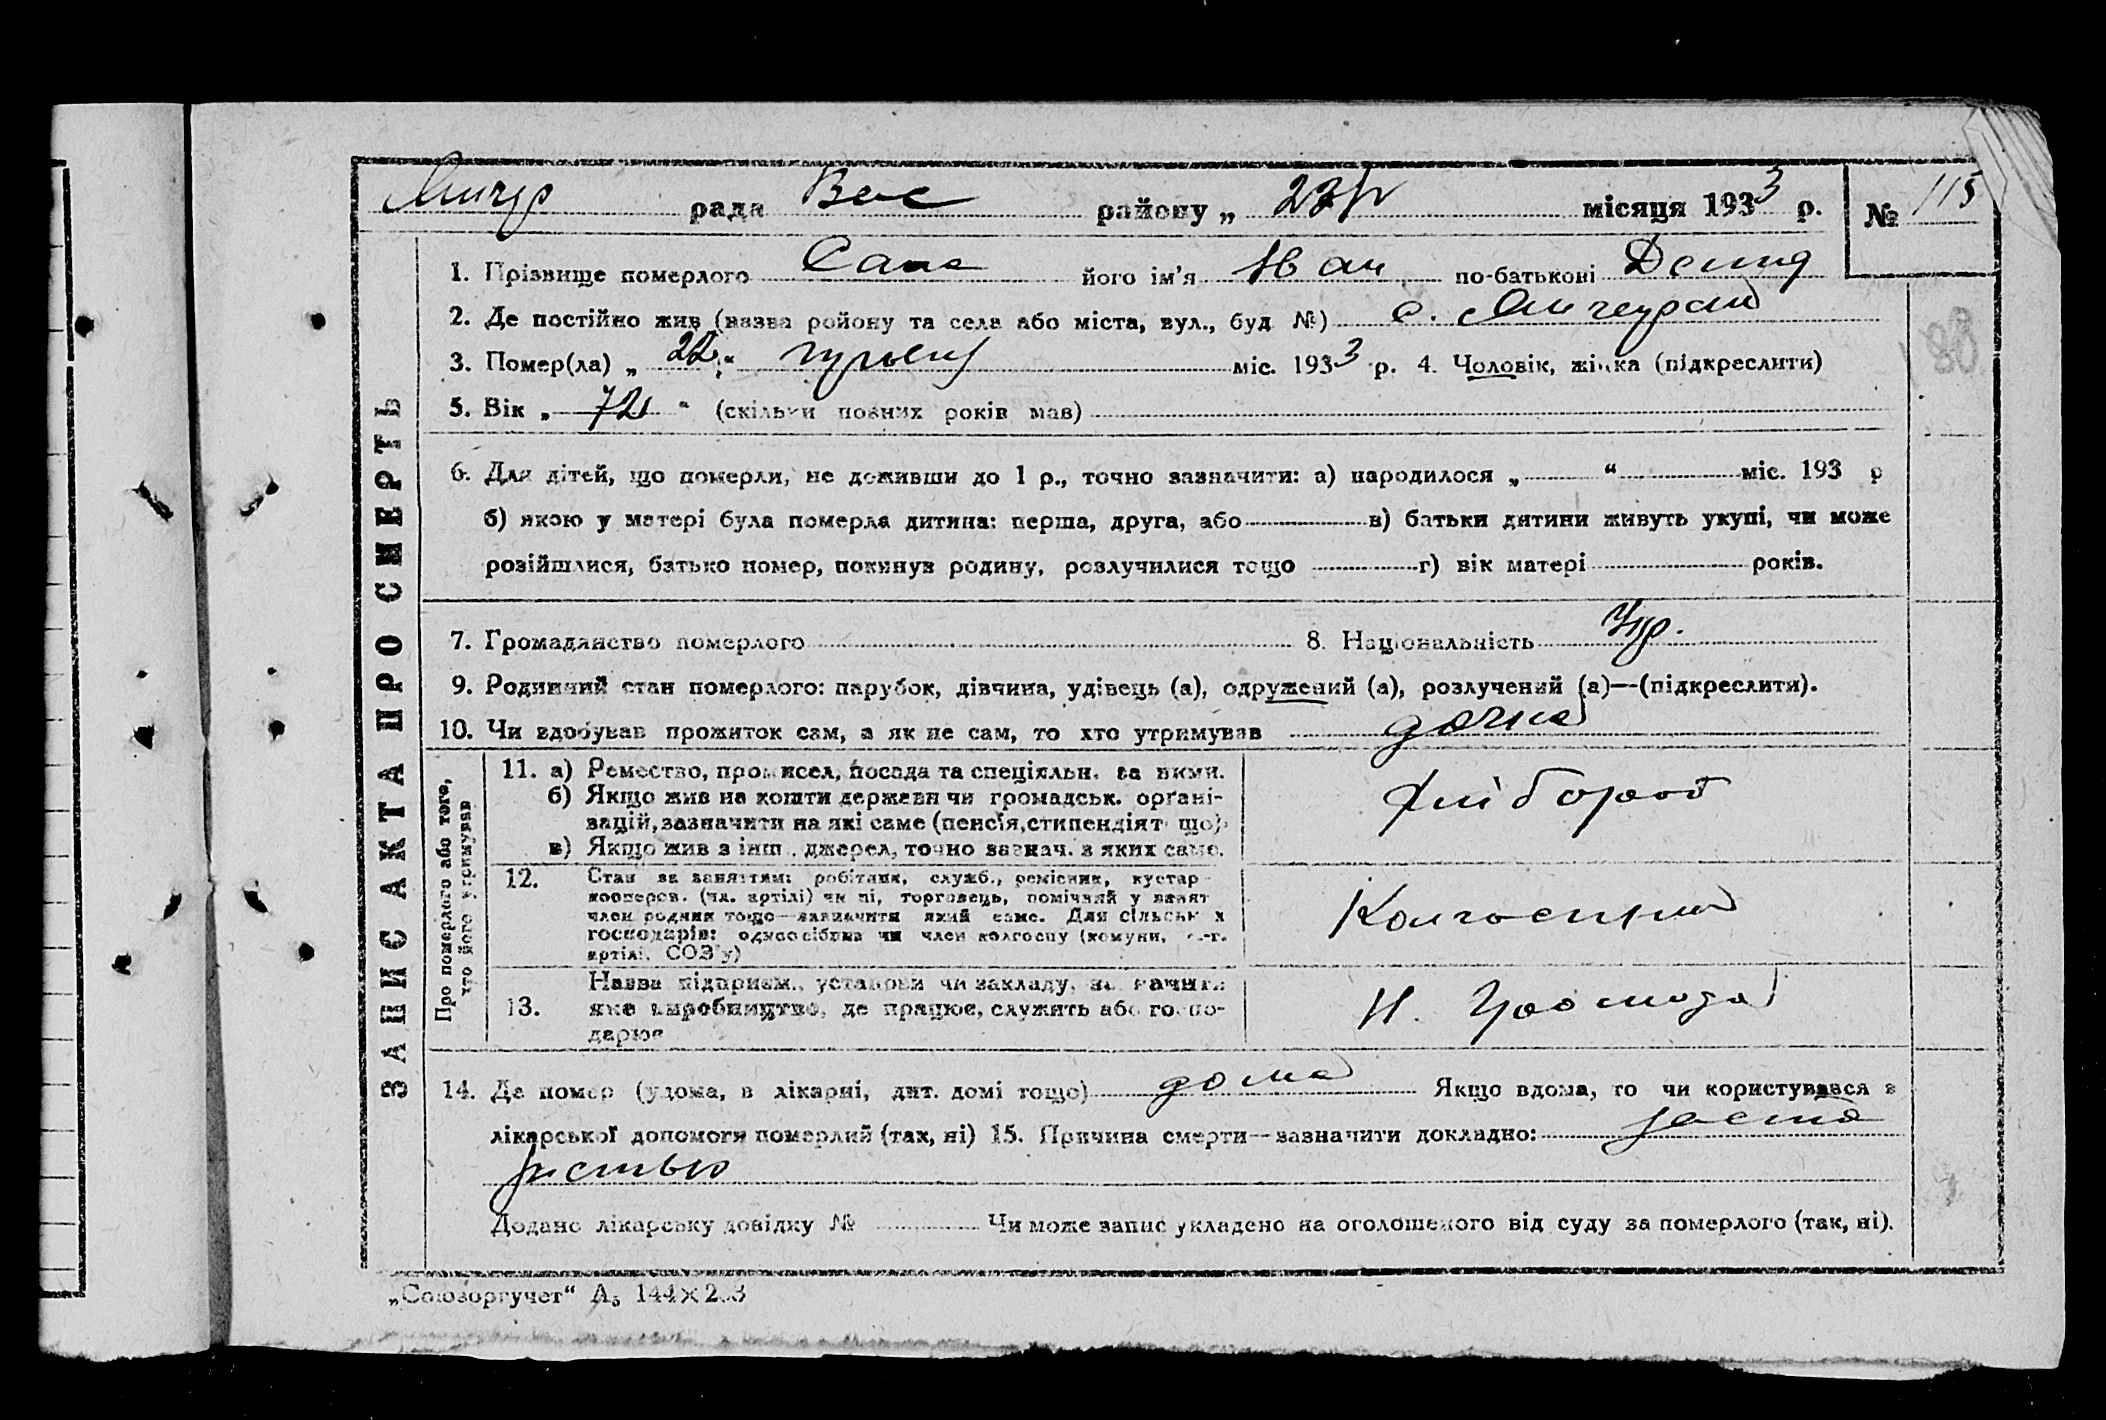 рада Вес району „ 23/V місяця 1933 р. № 115
1. Прізвище померлого Сапа його ім'я Іван по-батькові Демид
2. Де постійно жив (назва ройону та села або міста, вул., буд №) с.
3. Помер(ла) „ 22 “ міс. 1933 р. 4. Чоловік, жінка (підкреслити)
5. Вік „ 72 “ (скільки повних років мав)
6. Для дітей, що померли, не доживши до 1 р., точно зазначити: а) народилося „ “ міс. 193 р
б) якою у матері була померла дитина: перша, друга, або в) батьки дитини живуть укупі, чи може
розійшлися, батько помер, покинув родину, розлучилися тощо г) вік матері років.
7. Громадянство померлого 8. Національність Укр.
9. Родинний стан померлого: парубок, дівчина, удівець (а), одружений (а), розлучений (а)—(підкреслити).
10. Чи здобував прожиток сам, а як не сам, то хто утримував дочка
ЗАПИС АКТА ПРО СМЕРТЬ
Про померлого або того, хто його утримував
11. а) Ремество, промисел, посада та спеціяльн. за ними.
б) Якщо жив на кошти держави чи громадськ. органі-
зацій, зазначити на які саме (пенсія, стипендія т що)
в) Якщо жив з інш. джерел, точно зазнач. з яких саме.
Хлібороб
12. Стан за заняттям: робітник, служб., ремісник, кустар
кооперов. (чл. артілі) чи ні, торговець, помічний у занят
член родини тощо—зазначити який саме. Для сільськ х
господарів: одноосібник чи член колгоспу (комуни, с.-г.
артілі, СОЗ'у)
Колгоспник
13. Назва підприєм., установи чи закладу, зазначити
яке виробництво, де працює, служить або госпо-
дарює
Н.
14. Де помер (удома, в лікарні, дит. домі тощо) дома Якщо вдома, то чи користувався з
лікарської допомоги померлий (так, ні) 15. Причина смерти—зазначити докладно:
Додано лікарську довідку № Чи може запис укладено на оголошеного від суду за померлого (так, ні).
„Союзоргучет“ А₅ 144×203